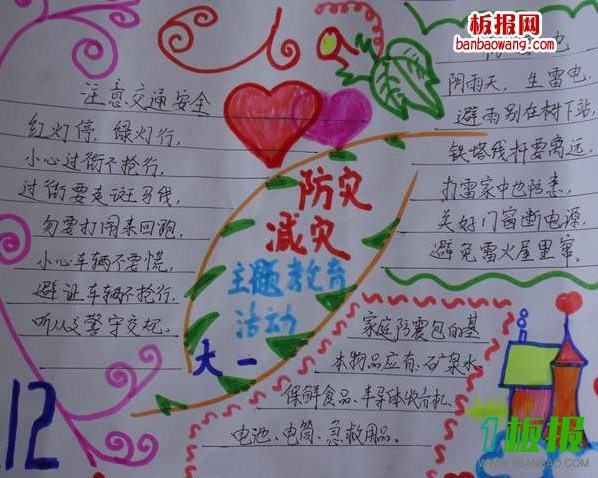 板报网
banbaowang.com
注意交通安全
红灯停,绿灯行,
小心过街不抢行,
过街要走斑马线,
勿要打闹来回跑,
小心车辆不要慌,
避让车辆不抢行,
听从交警守交规。
防灾
减灾
主题教育
活动
大一
电
阴雨天,生雷电,
避雨别在树下站,
铁塔线杆要离远,
打雷家中也防患,
关好门窗断电源,
避免雷火屋里窜。
家庭防震包的基
本物品应有:矿泉水、
保鲜食品、半导体收音机、
电池、电筒、急救用品。
12
1板报
WWW.1BANBAO.COM